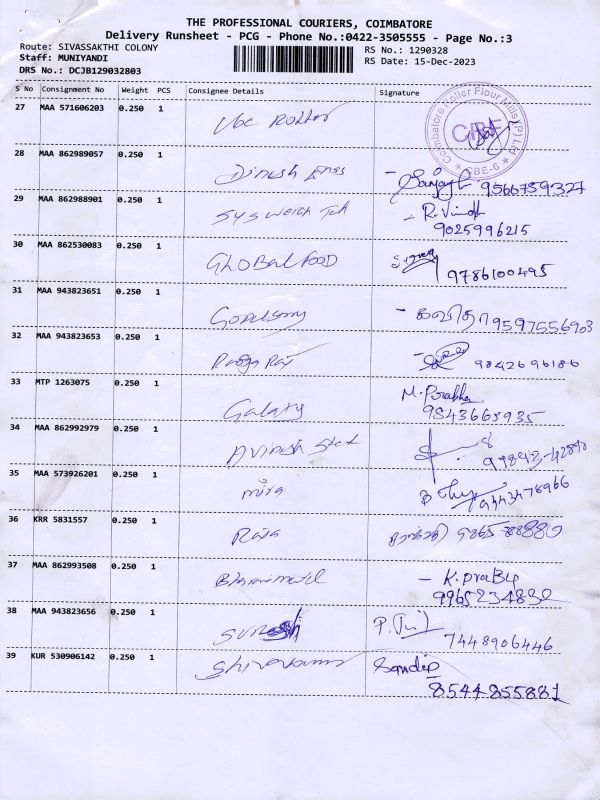 THE PROFESSIONAL COURIERS, COIMBATORE
Delivery Runsheet - PCG - Phone No.:0422-3505555 - Page No.:3
Route: SIVASSAKTHI COLONY RS No.: 1290328
Staff: MUNIYANDI RS Date: 15-Dec-2023
DRS No.: DCJB129032803
S No Consignment No Weight PCS Consignee Details Signature
27 MAA 571606203 0.250 1
Coimbatore Roller Flour Mills (P) Ltd
CBF
* CBE-6 *
28 MAA 862989057 0.250 1 Dinesh
9566759327
29 MAA 862988901 0.250 1 R. Vinoth
9025996215
30 MAA 862530083 0.250 1 GLOBal FOOD 9786100495
31 MAA 943823651 0.250 1 - கவிதா 9597556903
32 MAA 943823653 0.250 1 9842696186
33 MTP 1263075 0.250 1 Galaxy M. Prabha
9843665935
34 MAA 862992979 0.250 1 Avinash
35 MAA 573926201 0.250 1 mira 9443478966
36 KRR 5831557 0.250 1 Raja
37 MAA 862993508 0.250 1 - K. praBu
9965234830
38 MAA 943823656 0.250 1 SURESH
7448906446
39 KUR 530906142 0.250 1 Sandip
8544855881